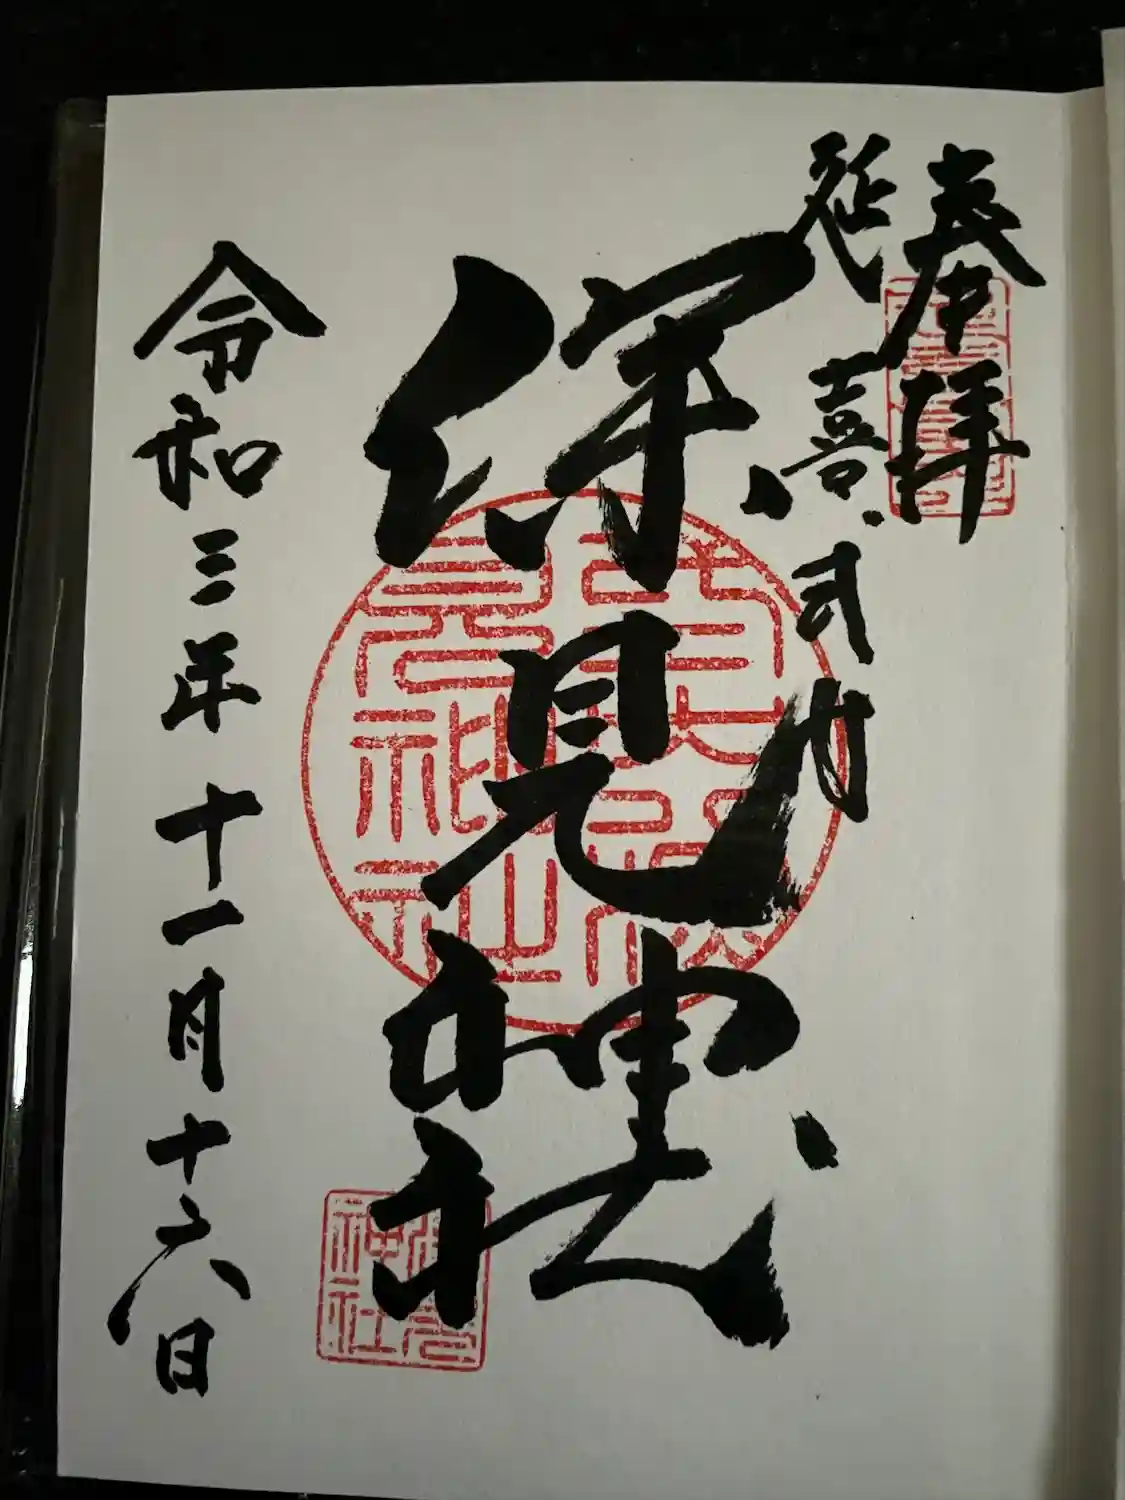 奉拝
延喜式内
深見神社
令和三年十一月十六日